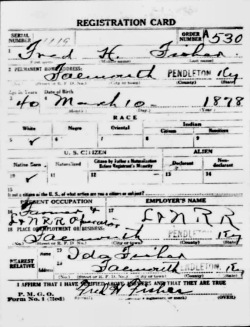 REGISTRATION CARD
SERIAL NUMBER
ORDER NUMBER A 530
1 Fred H. Fisher
2 PERMANENT HOME ADDRESS:
Falmouth PENDLETON Ky
Age in Years Date of Birth
40 March 10 1878
RACE
White Negro Oriental Indian
5 6 7 8 9
U. S. CITIZEN ALIEN
Native Born Naturalized Citizen by Father's Naturalization Before Registrant's Majority Declarant Non-declarant
10 11 12 13 14
15 If not a citizen of the U. S., of what nation are you a citizen or subject?
PRESENT OCCUPATION EMPLOYER'S NAME
L&NRR
18 PLACE OF EMPLOYMENT OR BUSINESS:
Falmouth PENDLETON Ky
NEAREST RELATIVE
Ida Fisher
Falmouth Ky
I AFFIRM THAT I HAVE VERIFIED ABOVE ANSWERS AND THAT THEY ARE TRUE
P. M. G. O.
Form No. 1 (Red)
Fred H Fisher